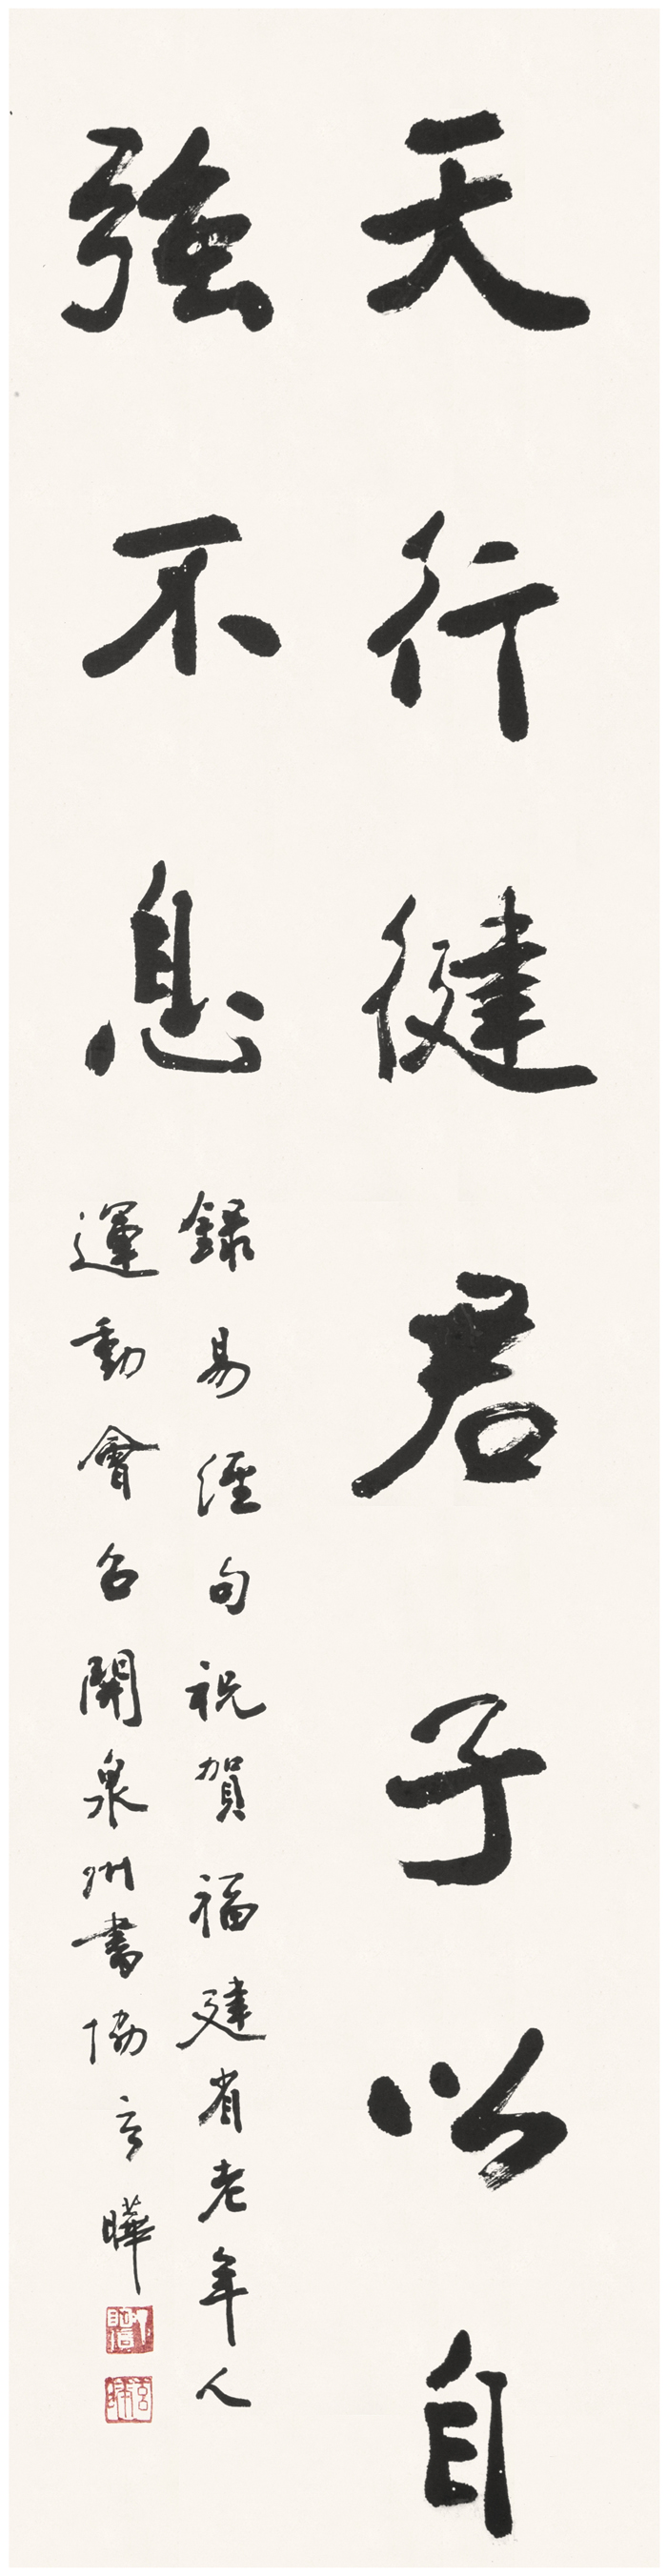 天行健君子以自
強不息
錄易經句祝賀福建省老年人
運動會召開泉州書協言曄